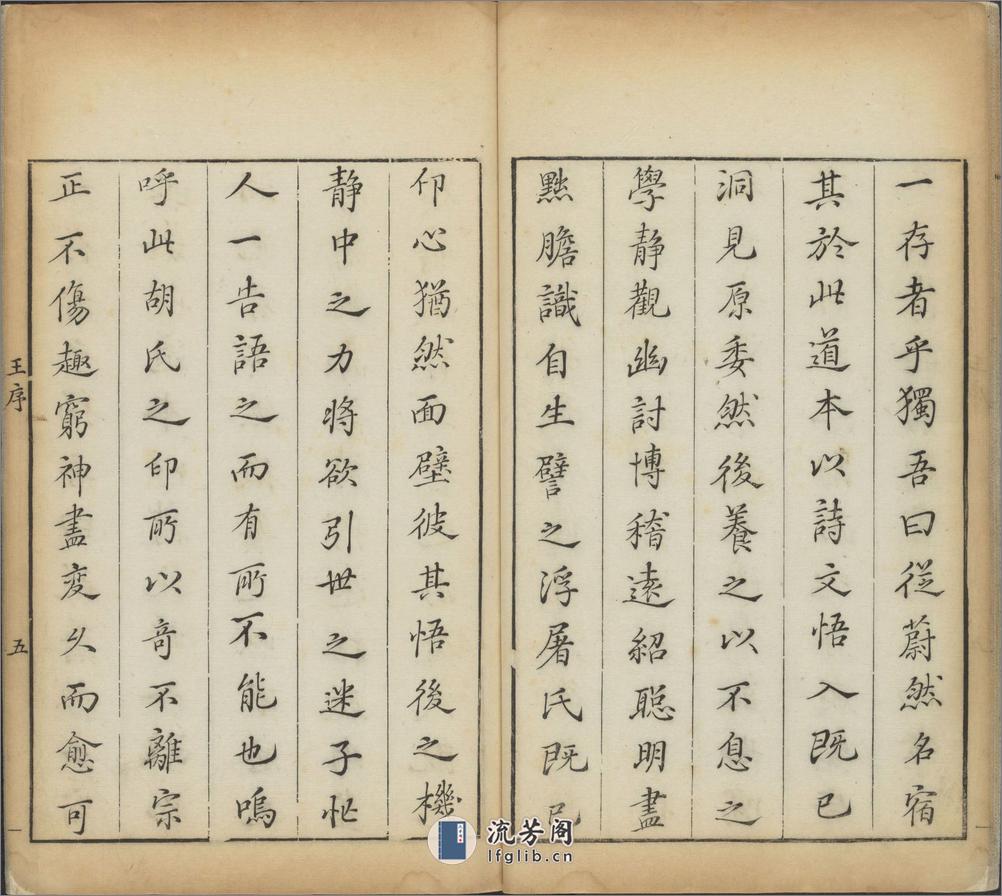 一存者乎獨吾曰從蔚然名宿
其於此道本以詩文悟入既已
洞見原委然後養之以不息之
學静觀幽討博稽遠紹聡明盡
黜膽識自生譬之浮屠氏既已
卬心猶然面壁彼其悟後之機
静中之力將欲引世之迷子恠
人一告語之而有所不能也嗚
呼此胡氏之印所以竒不離宗
正不傷趣窮神盡变久而愈可
王序
五
流芳阁
lfglib.cn